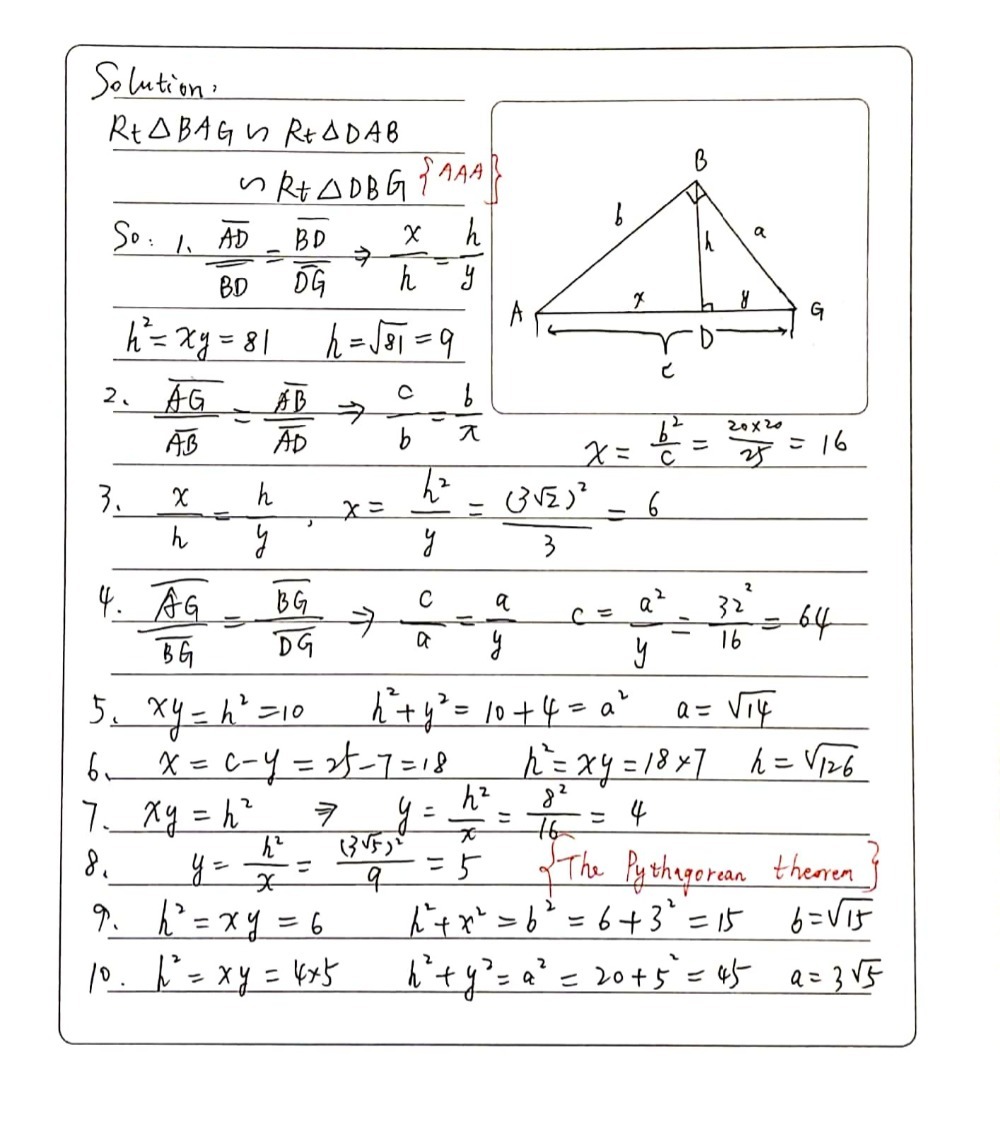 Solution:
Rt△BAG ∽ Rt△DAB
∽ Rt△DBG {AAA}
So: 1. A̅D̅/B̅D̅ = B̅D̅/D̅G̅ ⇒ x/h = h/y
h² = xy = 81 h = √81 = 9
B
b
h
a
A
x
y
G
D
c
2. A̅G̅/A̅B̅ = A̅B̅/A̅D̅ ⇒ c/b = b/x x = b²/c = 20×20/25 = 16
3. x/h = h/y, x = h²/y = (3√2)²/3 = 6
4. A̅G̅/B̅G̅ = B̅G̅/D̅G̅ ⇒ c/a = a/y c = a²/y = 32²/16 = 64
5. xy = h² = 10 h² + y² = 10 + 4 = a² a = √14
6. x = c - y = 25 - 7 = 18 h² = xy = 18×7 h = √126
7. xy = h² ⇒ y = h²/x = 8²/16 = 4
8. y = h²/x = (3√5)²/9 = 5 {The Pythagorean theorem}
9. h² = xy = 6 h² + x² = b² = 6 + 3² = 15 b = √15
10. h² = xy = 4×5 h² + y² = a² = 20 + 5² = 45 a = 3√5